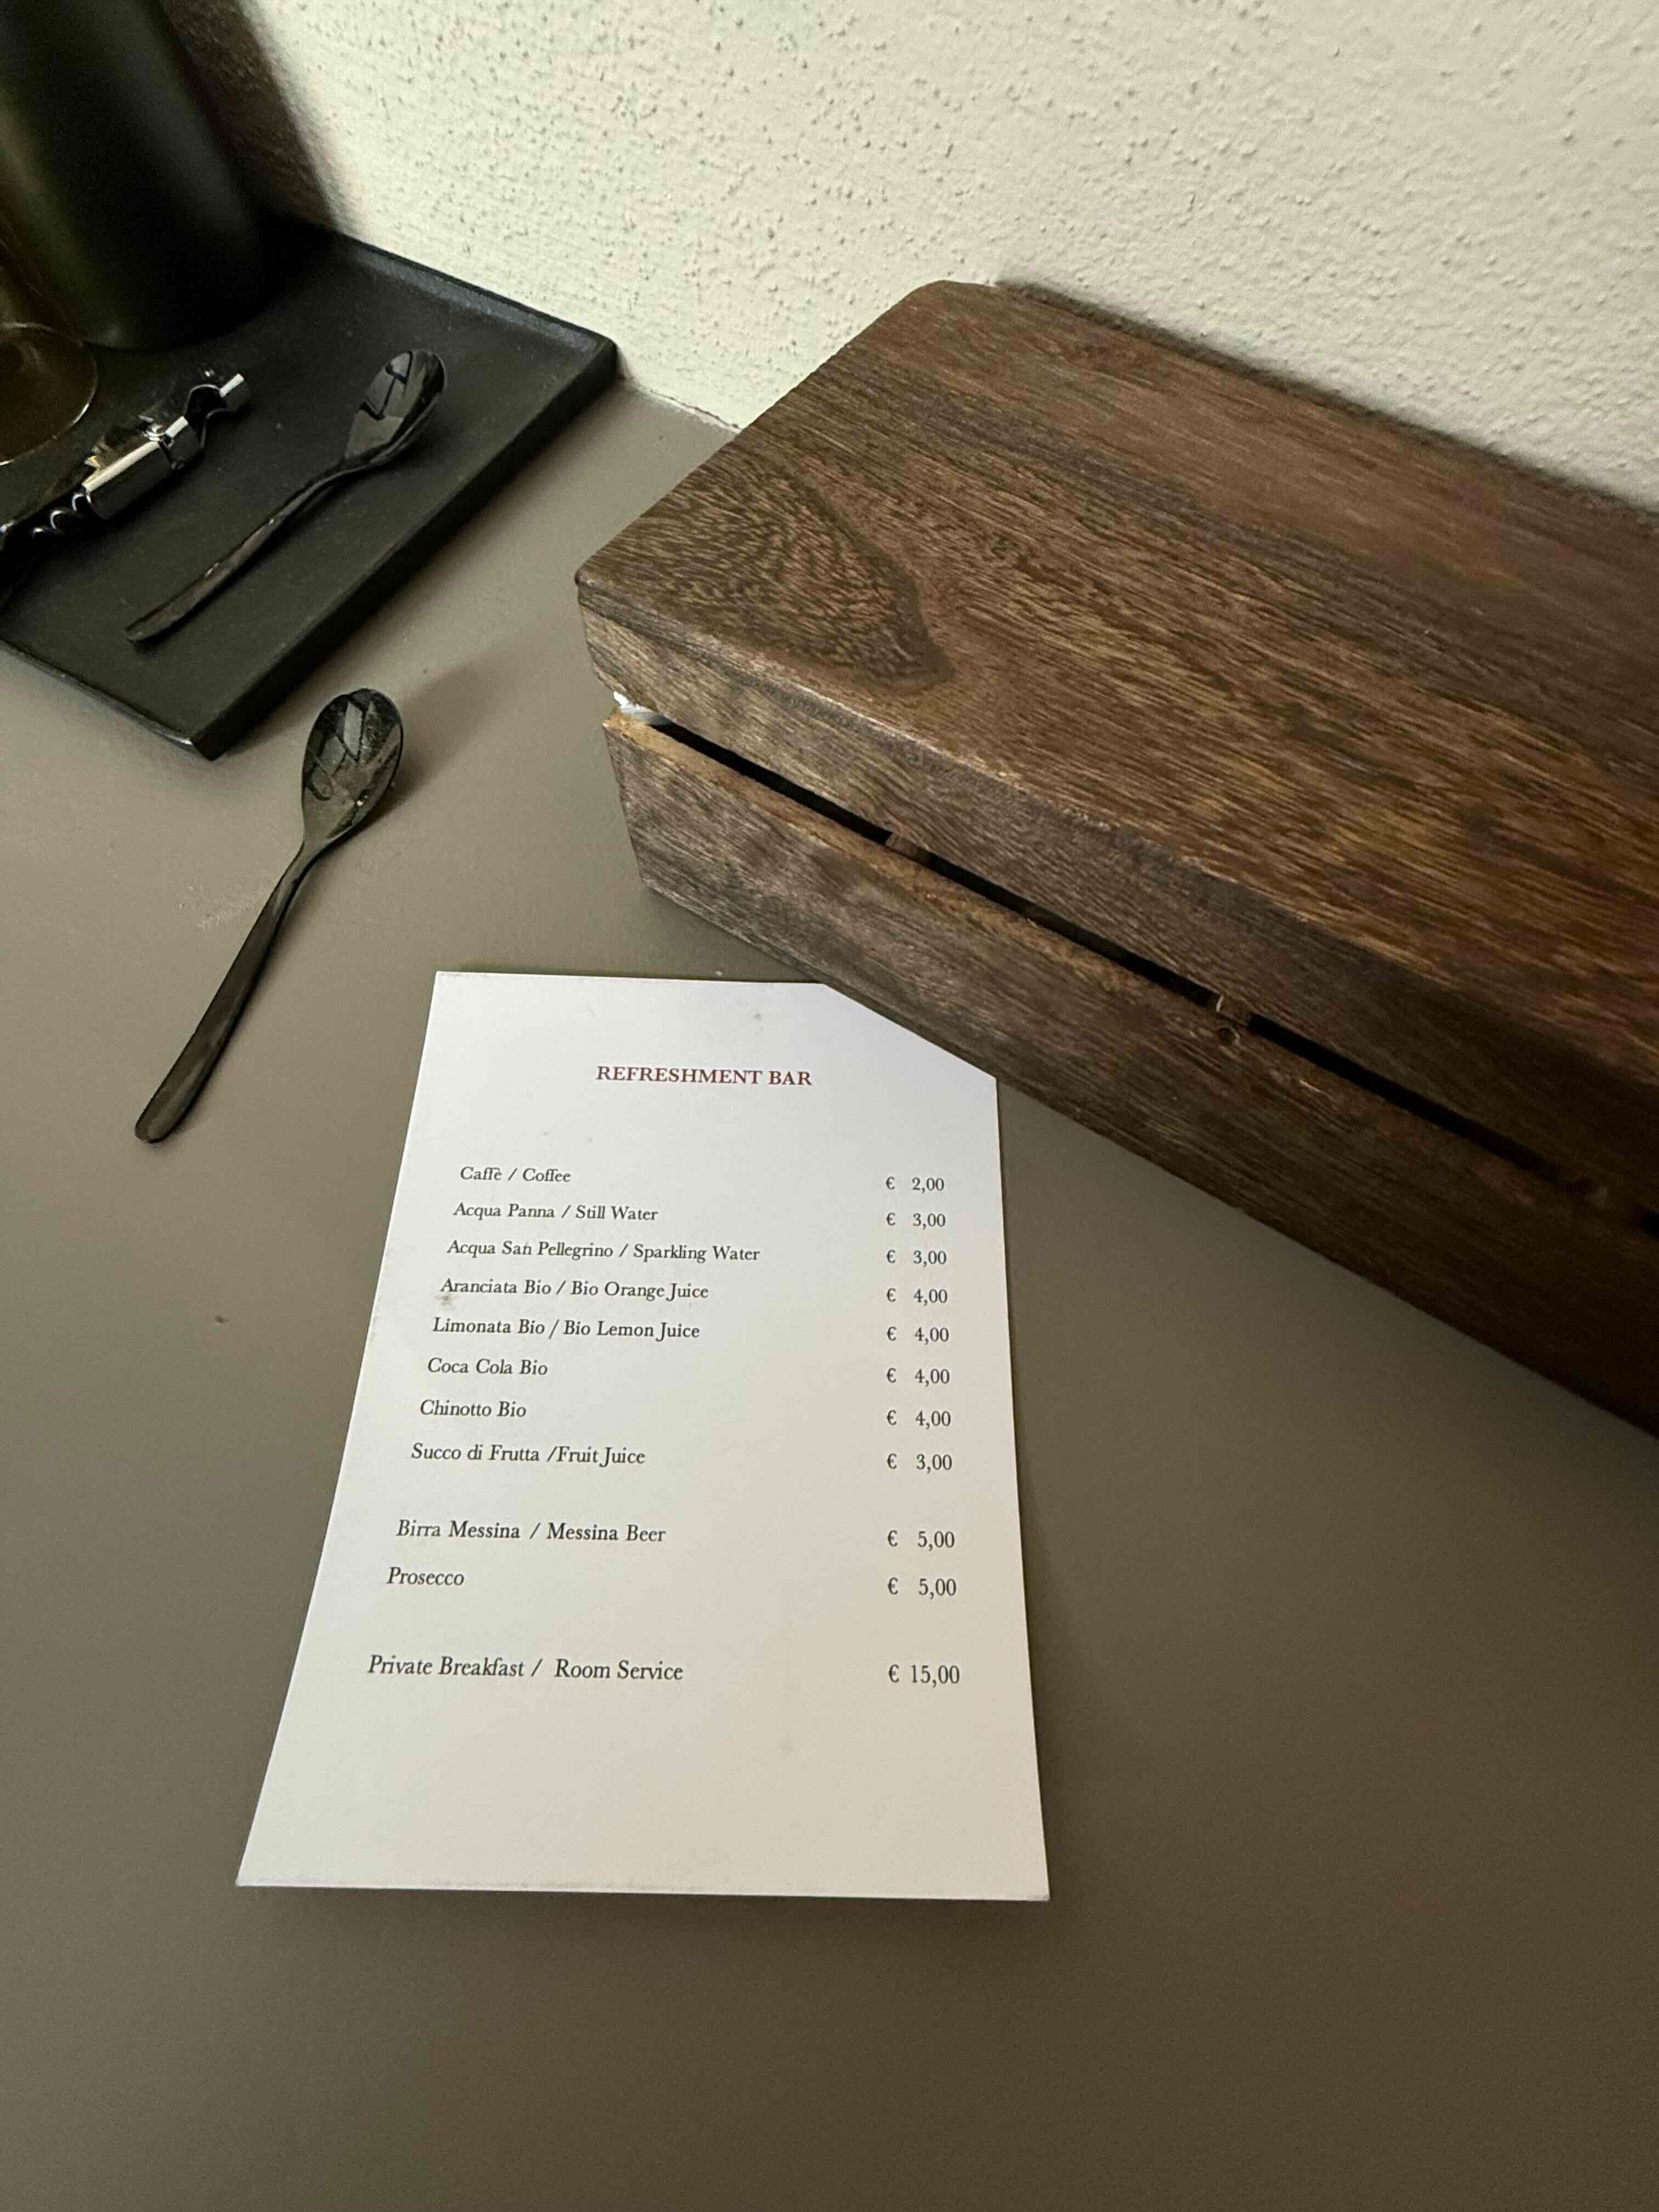 REFRESHMENT BAR
Caffè / Coffee € 2,00
Acqua Panna / Still Water € 3,00
Acqua San Pellegrino / Sparkling Water € 3,00
Aranciata Bio / Bio Orange Juice € 4,00
Limonata Bio / Bio Lemon Juice € 4,00
Coca Cola Bio € 4,00
Chinotto Bio € 4,00
Succo di Frutta /Fruit Juice € 3,00
Birra Messina / Messina Beer € 5,00
Prosecco € 5,00
Private Breakfast / Room Service € 15,00